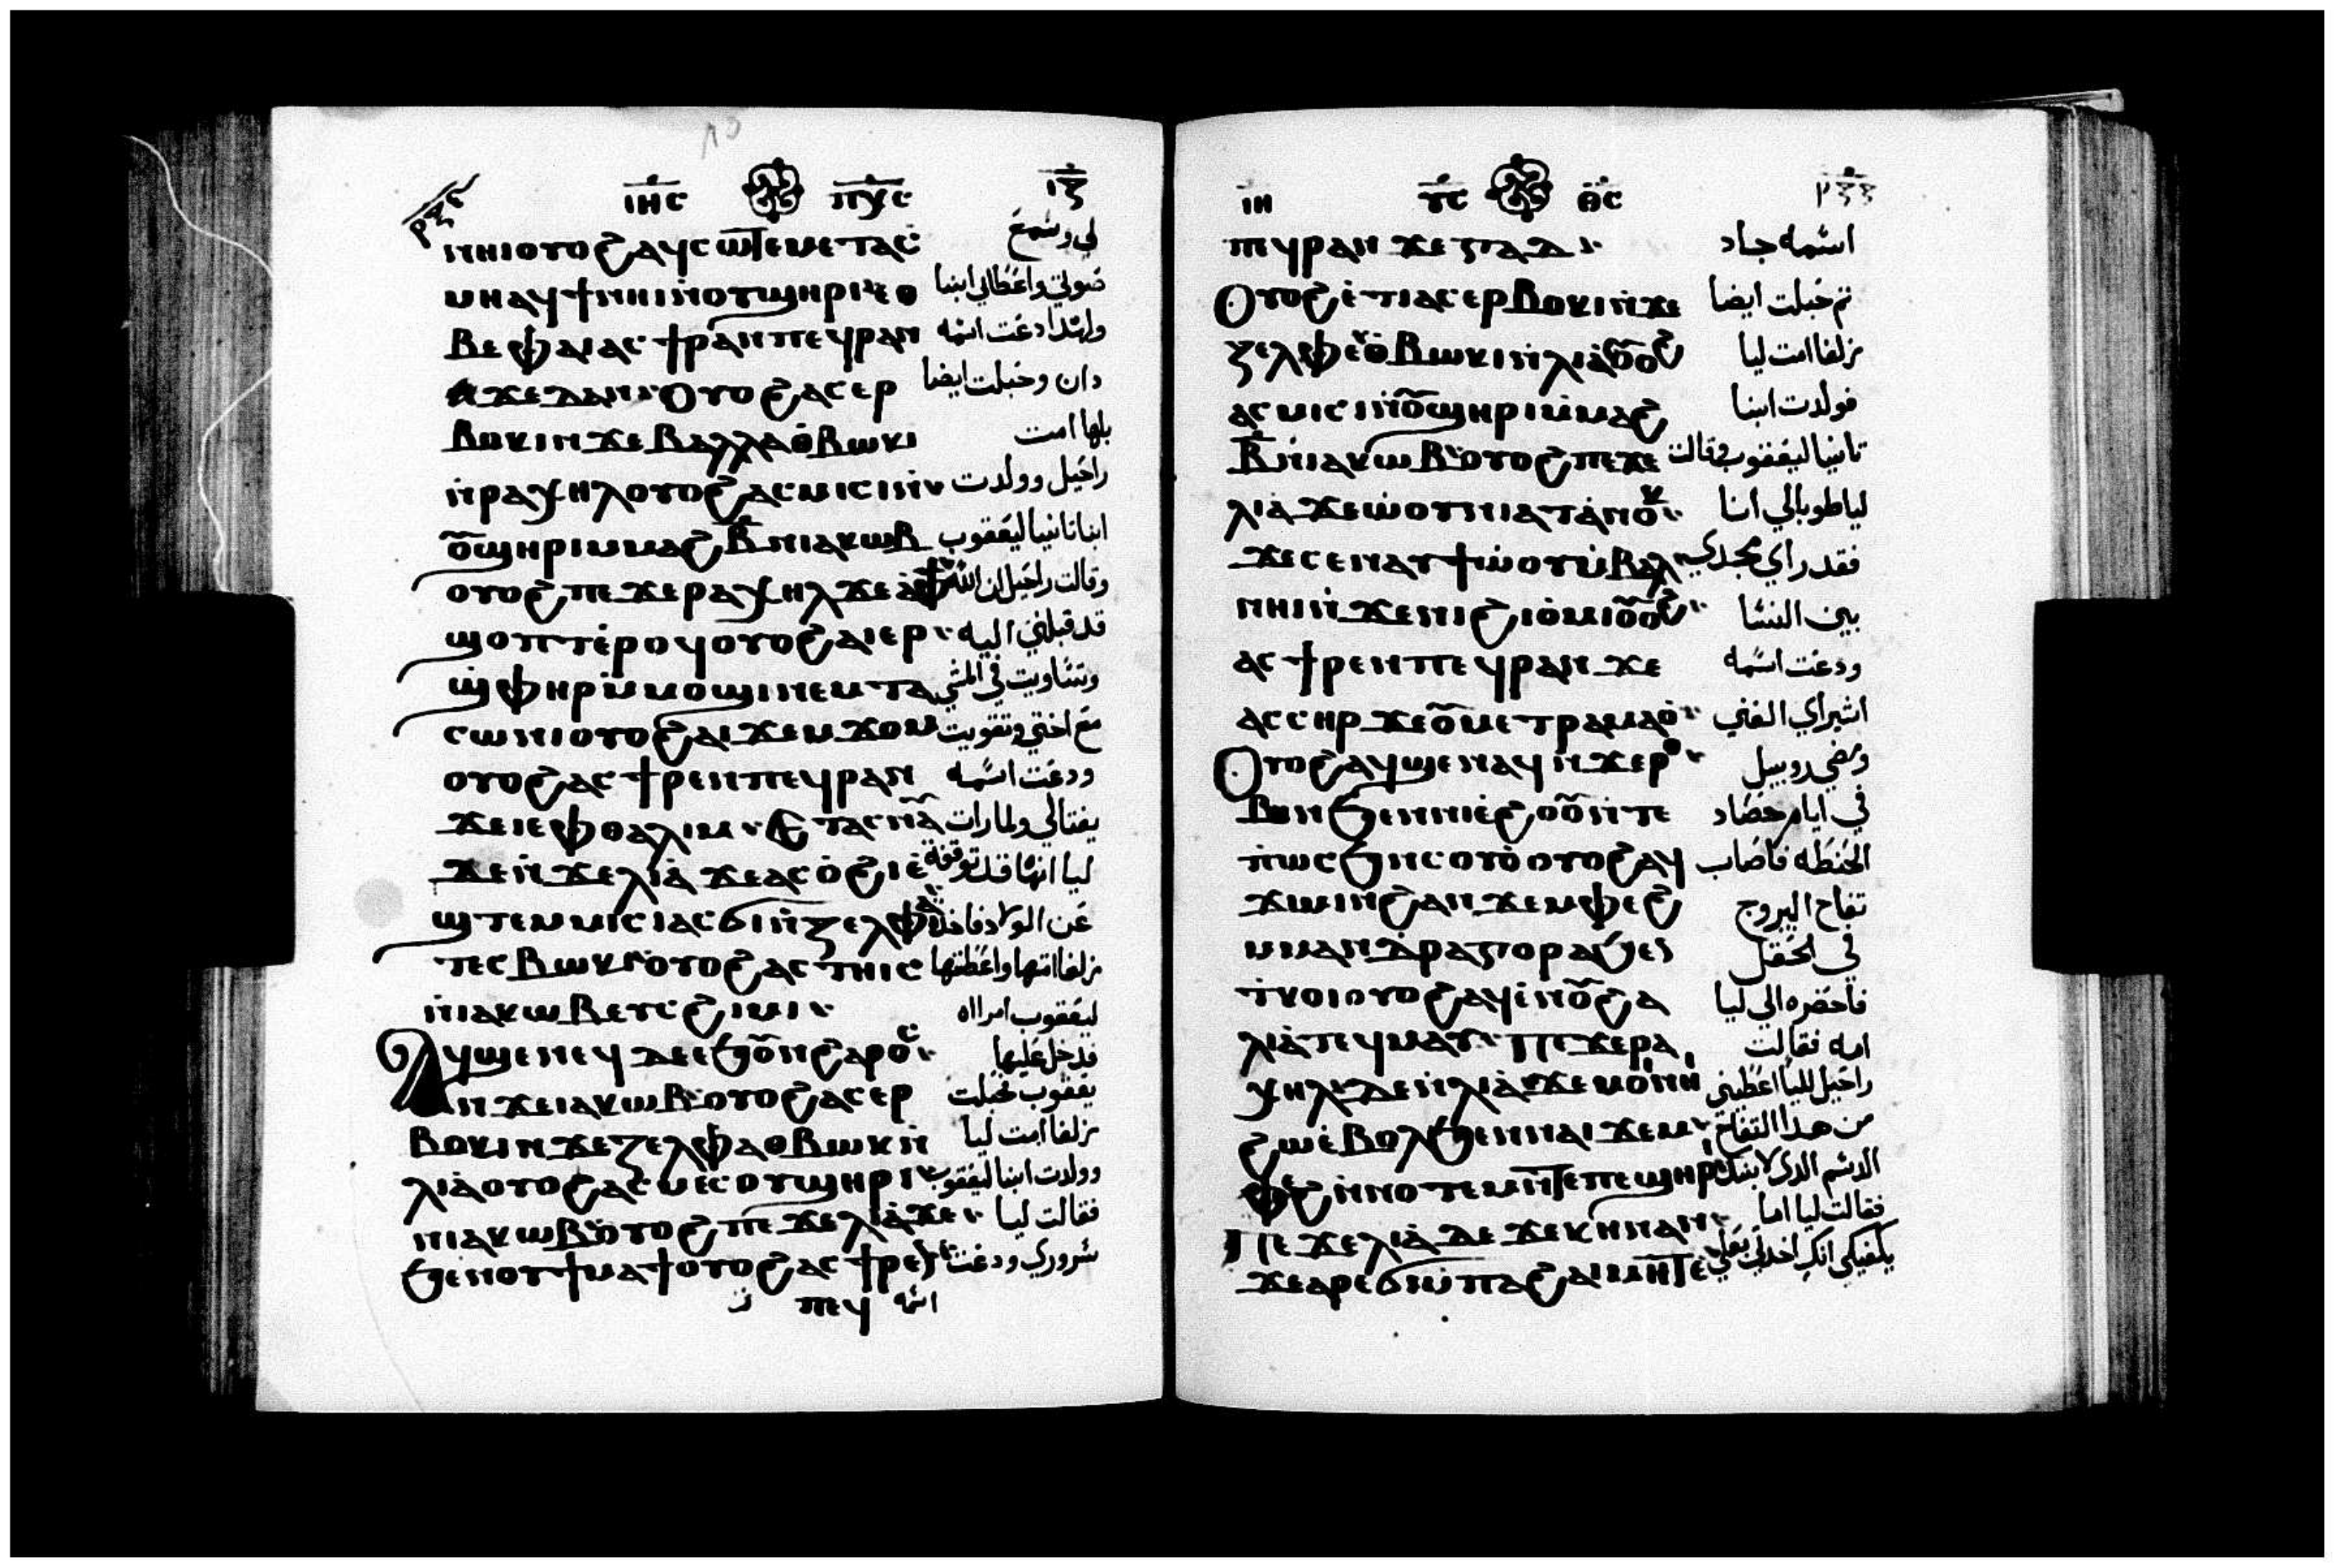 ⲓⲏⲥ ⲡⲭⲥ ⲓⲍ
ⲛⲏⲓ ⲟⲩⲟϩ ⲁϥⲥⲱⲧⲉⲙ ⲉⲧⲁⲥ لي وسمع
ⲙⲏ ⲁϥϯ ⲛⲏⲓ ⲛⲟⲩϣⲏⲣⲓ ⲉⲑ صوتي واعطاني ابنا
ⲃⲉ ⲫⲁⲓ ⲁⲥϯⲣⲁⲛ ⲡⲉϥⲣⲁⲛ ولهدا دعت اسمه
ϫⲉ ⲇⲁⲛ Ⲟⲩⲟϩ ⲁⲥⲉⲣ دان وحبلت ايضا
ⲃⲟⲕⲓ ⲛϫⲉ ⲃⲁⲗⲗⲁ ⲑⲃⲱⲕⲓ بلها امت
ⲛⲣⲁⲭⲏⲗ ⲟⲩⲟϩ ⲁⲥⲙⲓⲥⲓ ⲛ راحيل وولدت
ⲟⲩϣⲏⲣⲓ ⲙⲙⲁϩⲃ ⲛⲓⲁⲕⲱⲃ ابنا تانيا ليعقوب
ⲟⲩⲟϩ ⲡⲉϫⲉ ⲣⲁⲭⲏⲗ ϫⲉ ⲁⲫϯ وقالت راحيل ان الله
ϣⲟⲡⲧ ⲉⲣⲟϥ ⲟⲩⲟϩ ⲁⲓⲉⲣ قد قبلني اليه
ϣⲫⲏⲣ ⲙⲙⲟϣⲓ ⲛⲉⲙ ⲧⲁ وتساويت في المشي
ⲥⲱⲛⲓ ⲟⲩⲟϩ ⲁⲓϫⲉⲙϫⲟⲙ مع اختي وتقويت
ⲟⲩⲟϩ ⲁⲥϯⲣⲉⲛ ⲡⲉϥⲣⲁⲛ ودعت اسمه
ϫⲉ ⲓⲉⲫⲑⲁⲗⲓⲙ Ⲉⲧⲁⲥⲛⲁⲩ يفتالي ولما رات
ϫⲉ ⲛϫⲉ ⲗⲓⲁ ϫⲉ ⲁⲥⲟϩⲓ ⲉ ليا انها قد توقفة
ϣⲧⲉⲙⲙⲓⲥⲓ ⲁⲥϭⲓ ⲛⲍⲉⲗⲫⲁ عن الولاد فاخذت
ⲧⲉⲥⲃⲱⲕⲓ ⲟⲩⲟϩ ⲁⲥⲧⲏⲓⲥ زلفا امتها واعطتها
ⲛⲓⲁⲕⲱⲃ ⲉⲩⲥϩⲓⲙⲓ ليعقوب امراه
Ⲁϥϣⲉⲛⲉϥ ⲇⲉ ⲉϧⲟⲩⲛ ϩⲁⲣⲟⲥ فدخل عليها
ⲛϫⲉ ⲓⲁⲕⲱⲃ ⲟⲩⲟϩ ⲁⲥⲉⲣ يعقوب فحبلت
ⲃⲟⲕⲓ ⲛϫⲉ ⲍⲉⲗⲫⲁ ⲑⲃⲱⲕⲓ ⲛ زلفا امت ليا
ⲗⲓⲁ ⲟⲩⲟϩ ⲁⲥⲙⲉⲥ ⲟⲩϣⲏⲣⲓ وولدت ابنا ليعقوب
ⲛⲓⲁⲕⲱⲃ ⲟⲩⲟϩ ⲡⲉϫⲉ ⲗⲓⲁ ϫⲉ فقالت ليا
ϧⲉⲛ ⲟⲩϯⲙⲁϯ ⲟⲩⲟϩ ⲁⲥϯⲣⲉⲛ سروري ودعت
ⲡⲉϥ اسمه
ⲓⲏ ⲩⲥ ⲑⲥ
ⲡϥⲣⲁⲛ ϫⲉ ⲅⲁⲇ اسمه جاد
Ⲟⲩⲟϩ ⲉⲧⲓ ⲁⲥⲉⲣⲃⲟⲕⲓ ⲛϫⲉ تم حبلت ايضا
ⲍⲉⲗⲫⲉ ⲑⲃⲱⲕⲓ ⲛⲗⲓⲁ ⲟⲩⲟϩ زلفا امت ليا
ⲁⲥⲙⲓⲥⲓ ⲛⲟⲩϣⲏⲣⲓ ⲙⲙⲁϩ فولدت ابنا
ⲃ ⲛⲓⲁⲕⲱⲃ ⲟⲩⲟϩ ⲡⲉϫⲉ تانيا ليعقوب فقالت
ⲗⲓⲁ ϫⲉ ⲱⲟⲩⲛⲓⲁⲧ ⲁⲛⲟⲕ ليا طوبا لي انا
ϫⲉ ⲥⲉⲛⲁϯⲱⲟⲩ ⲙⲃⲁⲗ فقد راي مجدي
ⲛⲏⲓ ⲛϫⲉ ⲛⲓϩⲓⲟⲙⲓ ⲟⲩⲟϩ بين النسا
ⲁⲥϯⲣⲉⲛ ⲡⲉϥⲣⲁⲛ ϫⲉ ودعت اسمه
ⲁⲥⲥⲏⲣ ϫⲉ ⲟⲩⲙⲉⲧⲣⲁⲙⲁⲟ اشير اي الغني
Ⲟⲩⲟϩ ⲁϥϣⲉⲛⲁϥ ⲛϫⲉ ⲣⲟ ومضي روبيل
ⲃⲏⲛ ϧⲉⲛ ⲛⲓⲉϩⲟⲟⲩ ⲛⲧⲉ في ايام حصاد
ⲡⲱⲥϧ ⲛⲥⲟⲩⲟ ⲟⲩⲟϩ ⲁϥ الحنطه فاصاب
ϫⲓⲙⲓ ⲛϩⲁⲛϫⲉⲙⲫⲉϩ تفاح اليبروج
ⲙⲙⲁⲛⲇⲣⲁⲅⲟⲣⲁ ϧⲉⲛ في الحقل
ⲧⲕⲟⲓ ⲟⲩⲟϩ ⲁϥⲉⲛⲟⲩ ϩⲁ فاحضره الي ليا
ⲗⲓⲁ ⲧⲉϥⲙⲁⲩ Ⲡⲉϫⲉ ⲣⲁ امه فقالت
ⲭⲏⲗ ⲇⲉ ⲛⲗⲓⲁ ϫⲉ ⲙⲟⲓ ⲛⲏⲓ راحيل لليا اعطيني
ϩⲱ ⲉⲃⲟⲗ ϧⲉⲛ ⲛⲁⲓϫⲉⲙ من هدا التفاح
ⲫⲉϩ ⲛⲛⲟⲩⲧⲉⲙ ⲛⲧⲉ ⲡⲉϣⲏⲣⲓ الدسم الدي لابنك
Ⲡⲉϫⲉ ⲗⲓⲁ ⲇⲉ ϫⲉ ⲕⲏⲛ ⲁⲛ فقالت ليا اما
ϫⲉ ⲁⲣⲉϭⲓ ⲙⲡⲁϩⲁⲓ ⲙⲏⲧⲉ يكفيكي انك اخدتي بعلي